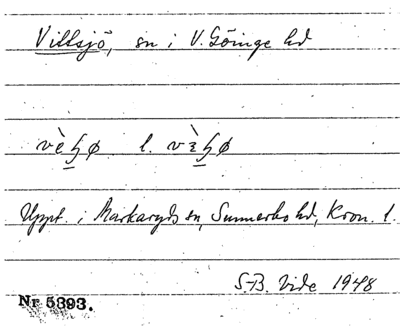 Vittsjö, sn i V. Göinge hd
vèɧø l. vɛ̀ɧø
Uppt. i Markaryds sn, Sunnerbo hd, Kron. l.
S-B. Vide 1948
Nr 5393.